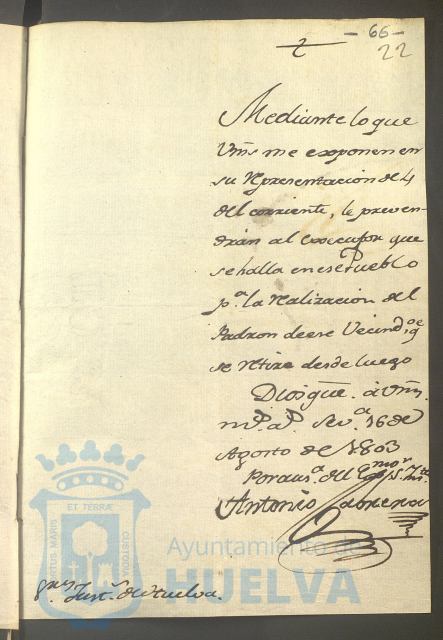 - 66 -
22
2
Mediante lo que
Vms me exponen en
su representacion de 4
del corriente, le preven-
drán al Executor que
se halla en ese Pueblo
pª la realizacion del
Padron de ese Vecindº
se retire desde luego
Dios gue. à Vms.
ms. as. Sevª 16 de
Agosto de 1803
Por ausª del
Antonio Cabrera
Sres Justª de Huelva.
ET TERRÆ
PORTUS MARIS
CUSTODIA
Ayuntamiento de
HUELVA